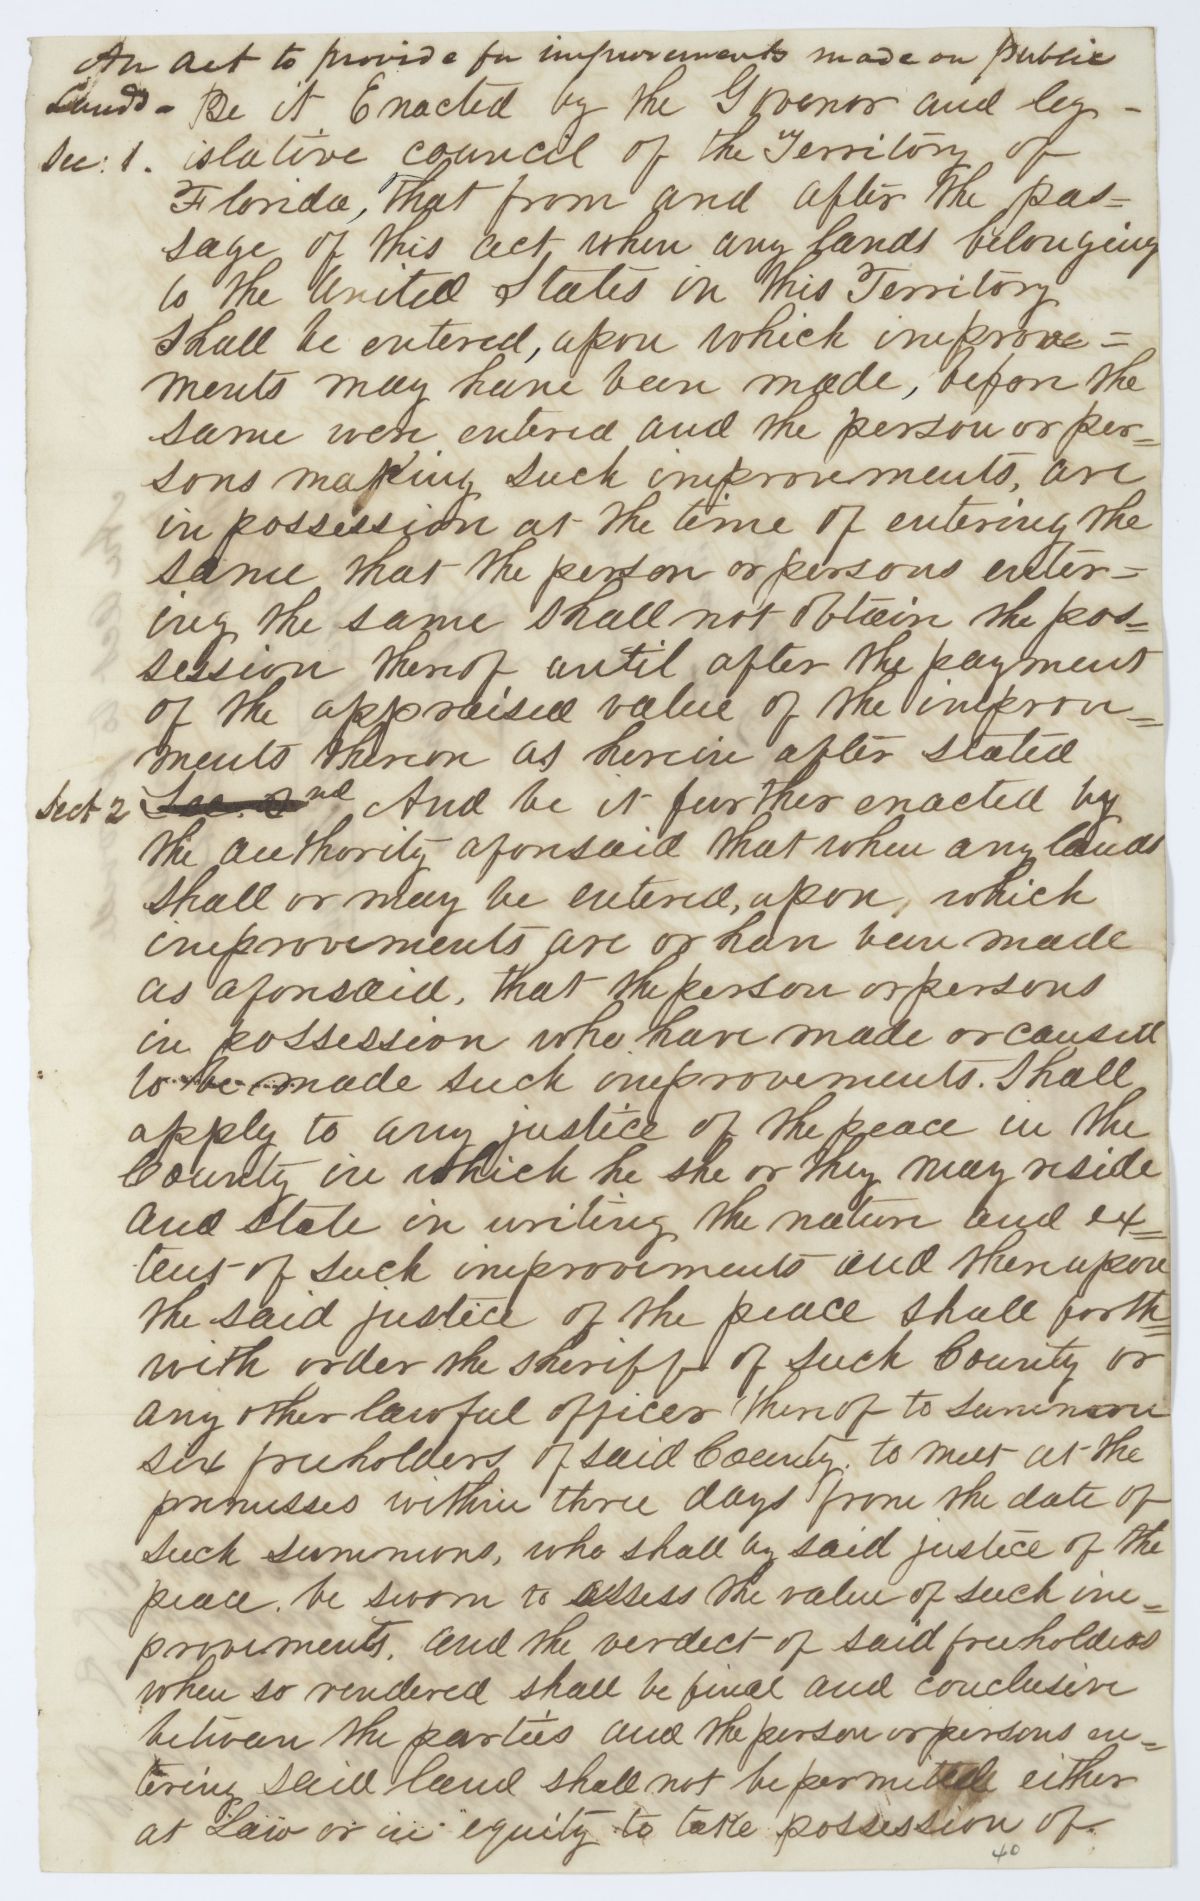 An act to provide for improvements made on public
Lands - Be it Enacted by the Govenor and leg -
Sec: 1. islative council of the Territory of
Florida, That from and after the pas=
sage of this act when any lands belonging
to the United States in this Territory
Shall be entered, upon which improve =
ments may have been made, before the
same were entered and the person or per=
sons making such improvements, are
in possession at the time of entering the
same that the person or persons enter=
ing the same shall not obtain the pos=
session thereof until after the payment
of the appraised value of the improve=
ments thereon as herein after stated
Sect 2 Sec. 2nd And be it further enacted by
the authority aforesaid that when any lands
shall or may be entered, upon, which
improvements are or have been made
as aforesaid, that the person or persons
in possession who have made or caused
to be made such improvements. Shall
apply to any justice of the peace in the
County in which he she or they may reside
and state in writing the nature and ex=
tent of such improvements and thereupon
the said justice of the peace shall forth=
with order the sheriff of such County or
any other lawful officer thereof to summon
six freeholders of said County. to meet at the
premisses within three days from the date of
such summons, who shall by said justice of the
peace. be sworn to assess the value of such im=
provements. and the verdect of said freeholders
when so rendered shall be final and conclusive
between the parties and the person or persons en=
tering said land shall not be permitted either
at Law or in equity to take possession of
40